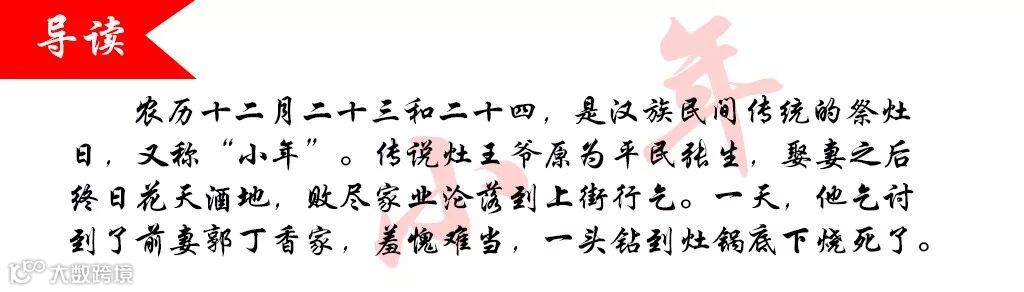 导读
小年
农历十二月二十三和二十四，是汉族民间传统的祭灶
日，又称“小年”。传说灶王爷原为平民张生，娶妻之后
终日花天酒地，败尽家业沦落到上街行乞。一天，他乞讨
到了前妻郭丁香家，羞愧难当，一头钻到灶锅底下烧死了。
大数跨境